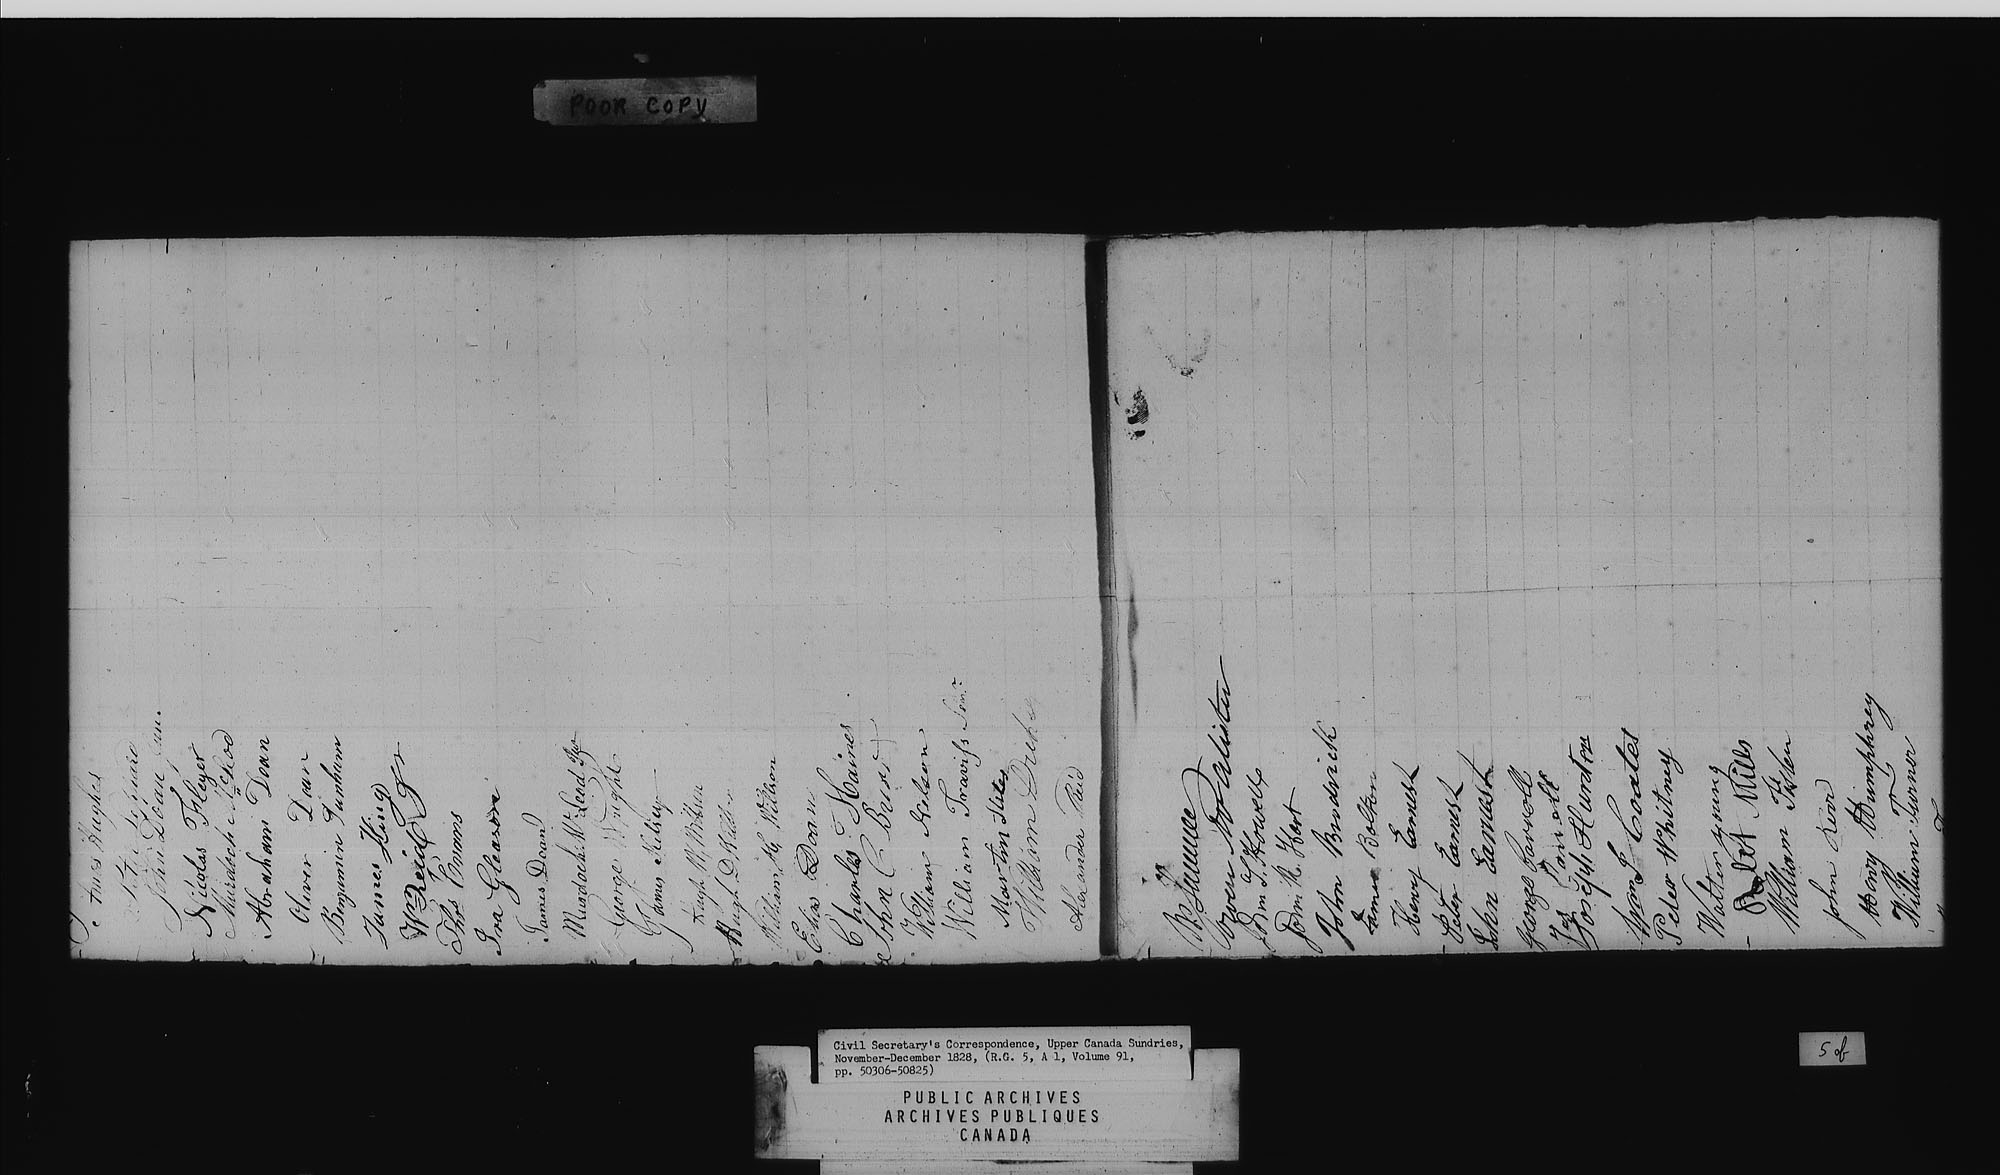 POOR COPY
Amos Hughes
John Doan Jun.
Nicolas Fleyer
Murdoch McLeod
Abraham Doan
Oliver Doan
Benjamin Dunham
James King
W Reid Jr
Thos Evans
Ira Gleason
James Doan
Murdoch McLeod Jur
George Wright
James Kelsey
Hugh D Willson
William H, Willson
Elias Doan
Charles Haines
John C Burd
William Nelson
William Traviss Senr
Martin Stiles
William Drake
Alexander Reid
Owen McAlister
Jnm S. Howell
John Brodrick
James Bolton
Henry Earnest
Peter Earnest
John Earnest
George Barwell
Joseph Hunton
Wm S Coates
Peter Whitney
Walter young
Robt Wills
William Foster
John Keen
Henry Humphrey
William Turner
Civil Secretary's Correspondence, Upper Canada Sundries,
November-December 1828, (R.G. 5, A 1, Volume 91,
pp. 50306-50825)
PUBLIC ARCHIVES
ARCHIVES PUBLIQUES
CANADA